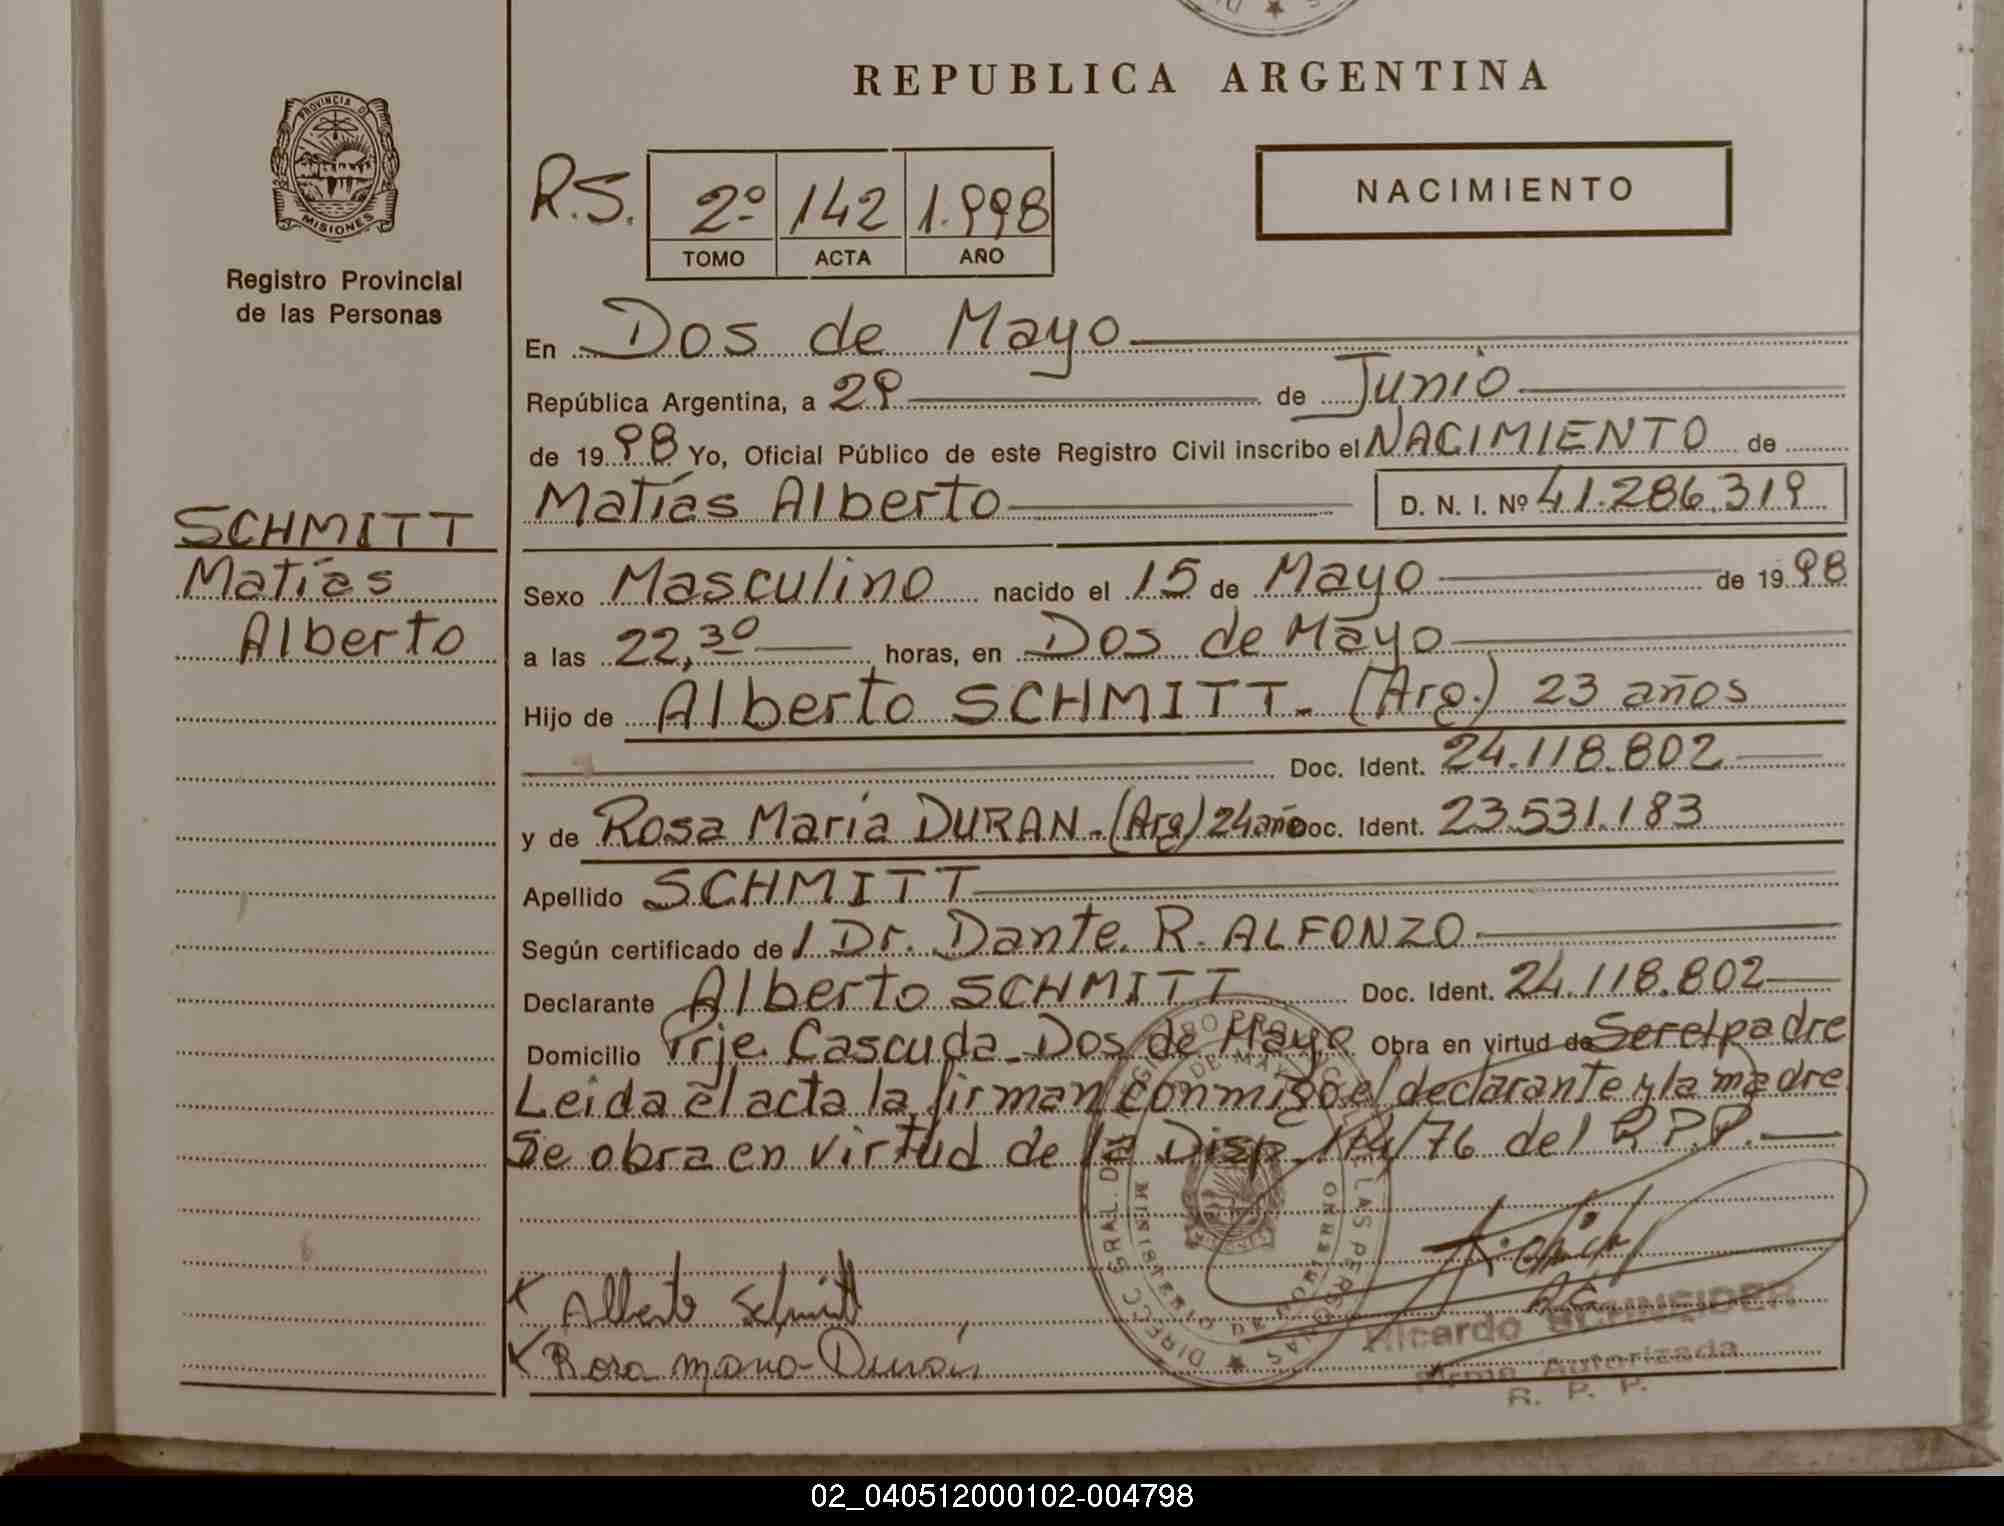 REPUBLICA ARGENTINA
PROVINCIA DE
MISIONES
Registro Provincial
de las Personas
R.S. 2º 142 1.998
TOMO ACTA AÑO
NACIMIENTO
En Dos de Mayo
República Argentina, a 29 de Junio
de 1998 Yo, Oficial Público de este Registro Civil inscribo el NACIMIENTO de
Matías Alberto D. N. I. Nº 41.286.319
SCHMITT
Matías
Alberto
Sexo Masculino nacido el 15 de Mayo de 1998
a las 22,30 horas, en Dos de Mayo
Hijo de Alberto SCHMITT. (Arg.) 23 años
Doc. Ident. 24.118.802
y de Rosa María DURAN. (Arg) 24 años Doc. Ident. 23.531.183
Apellido SCHMITT
Según certificado de / Dr. Dante R. ALFONZO
Declarante Alberto SCHMITT Doc. Ident. 24.118.802
Domicilio Prje. Cascuda - Dos de Mayo Obra en virtud de Ser el padre
Leida el acta la firman conmigo el declarante y la madre
Se obra en virtud de la Disp 114/76 del R.P.P.
Alberto Schmitt
Rosa Maria Duran
Ricardo SCHNEIDER
Firma Autorizada
R. P. P.
02_040512000102-004798